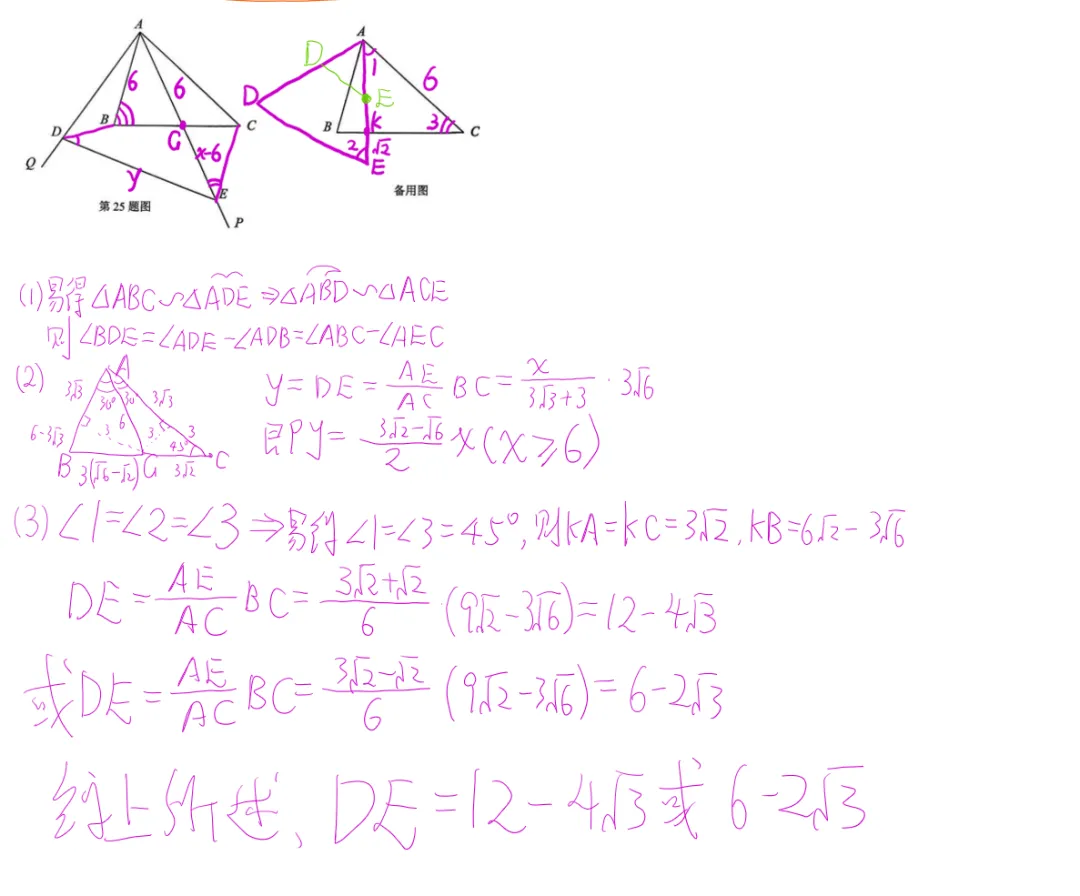 A A
D
6 6 1 6
D E
D B C B K 3 C
G 2 √2
x-6 E
Q y E 备用图
第25题图 P
(1)易得△ABC∽△ADE⇒△ABD∽△ACE
则∠BDE=∠ADE-∠ADB=∠ABC-∠AEC
(2) A
3√3 30° 30 3√3
6 3 3 3
6-3√3 45°
B G C
3(√6-√2) 3√2
y=DE=\frac{AE}{AC}BC=\frac{x}{3√3+3}·3√6
即y=\frac{3√2-√6}{2}x(x≥6)
(3)∠1=∠2=∠3⇒易得∠1=∠3=45°,则KA=KC=3√2,KB=6√2-3√6
DE=\frac{AE}{AC}BC=\frac{3√2+√2}{6}(9√2-3√6)=12-4√3
或DE=\frac{AE}{AC}BC=\frac{3√2-√2}{6}(9√2-3√6)=6-2√3
综上所述、DE=12-4√3或6-2√3